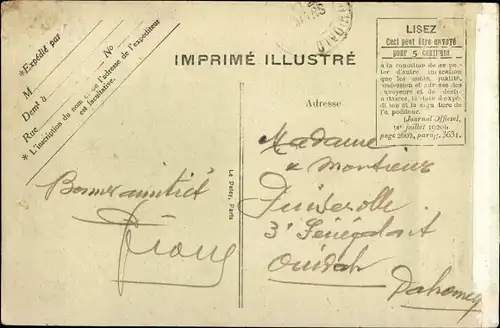 *Expédié par
M                No
Demt à
Rue
* L'inscription du nom et de l'adresse de l'expéditeur
est facultative.
IMPRIMÉ ILLUSTRÉ
LISEZ
Ceci peut être envoyé
pour 5 centimes
à la condition de ne por-
ter d'autre indication
que les nom, qualité,
profession et adresse des
envoyeurs et de desti-
nataires, la date d'expé-
dition et la signature de
l'expéditeur.
(Journal Officiel,
1er juillet 1920
page 2602, parag. 3631.
Adresse
Bonne amitié
Le Deley, Paris
Madame
& Monsieur
3e Sénégalait
Ouidah
Dahomey